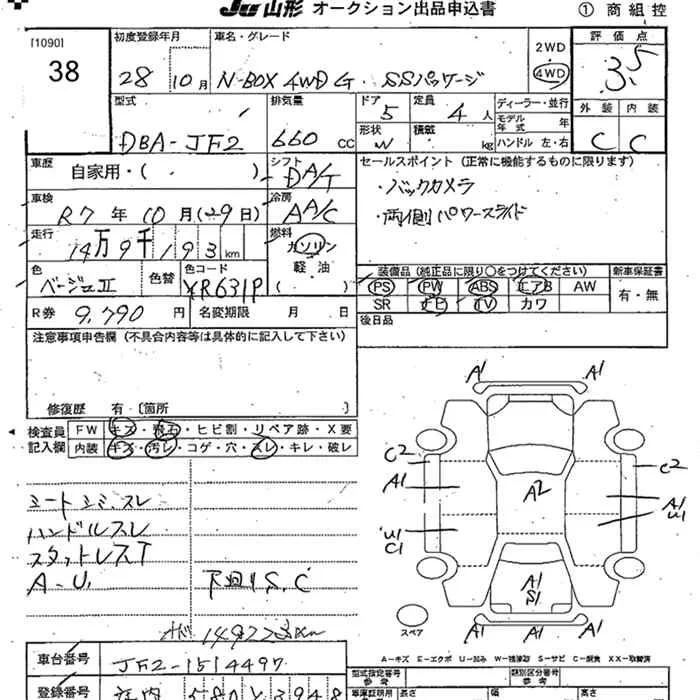 JU 山形 オークション出品申込書 ① 商 組 控
[1090]
38
初度登録年月
28 10 月
車名・グレード
N-BOX 4WD G SSパッケージ
2WD
4WD
評価点
3.5
型式
DBA-JF2
排気量
660 CC
ドア
5
定員
4 人
形状
W
積載
kg
ディーラー・並行
モデル年式 年
ハンドル 左・右
外装 内装
C C
車歴
自家用・( )
シフト
DA/T
セールスポイント (正常に機能するものに限ります)
・バックカメラ
・両側パワースライド
車検
R7 年 10 月(29日)
冷房
AA/C
走行
14万9千193 km
燃料
ガソリン
軽油
( )
色
ベージュII
色替
色コード
YR631P
装備品 (純正品に限り○をつけてください)
新車保証書
PS PW ABS エアB AW
SR ナビ TV カワ
有・無
R券 9,790 円
名変期限 月 日
後日品
注意事項申告欄 (不具合内容等は具体的に記入して下さい)
修復歴 有 [箇所 ]
検査員記入欄
FW キズ・飛石・ヒビ割・リペア跡・X要
内装 キズ・汚レ・コゲ・穴・スレ・キレ・破レ
シートシミ、スレ
ハンドルスレ
スタットレスT
A-U
下廻りS、C
A1
A1 A1
C2 C2
A1
A2
A1
U1
U1
C1
A1
S1
A1 A1
スペア
A=キズ E=エクボ U=凹み W=補修跡 S=サビ C=腐食 XX=取替済
車台番号
JF2-1514497
登録番号
型式指定番号
参考
類別区分番号
参考
長さ 幅 高さ